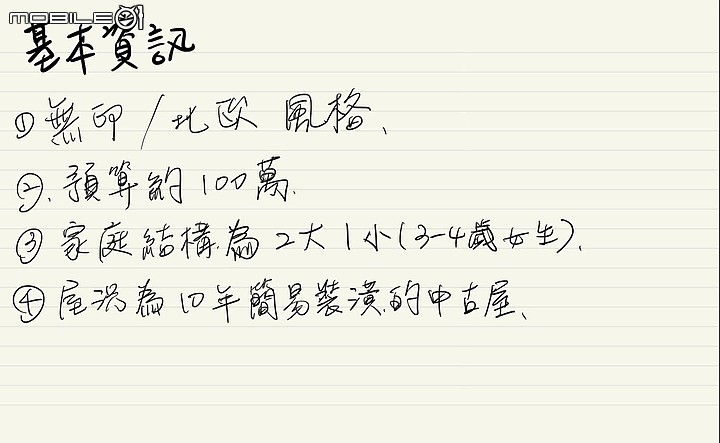 MOBILE01
基本資訊
①無印/北歐 風格、
②.預算約100萬.
③家庭結構為2大1小(3-4歲女生).
④屋況為10年簡易裝潢的中古屋、